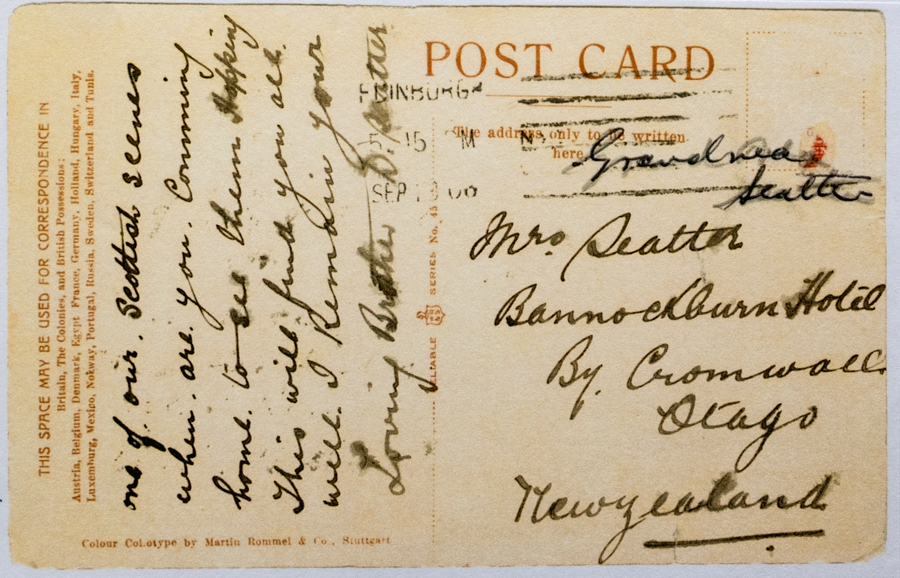 THIS SPACE MAY BE USED FOR CORRESPONDENCE IN
Britain, The Colonies, and British Possessions:
Austria, Belgium, Denmark, Egypt France, Germany, Holland, Hungary, Italy,
Luxemburg, Mexico, Norway, Portugal, Russia, Sweden, Switzerland and Tunis.
one of our. Scottish scenes
when. are you. Comming
home. to see them Hopping
This will find you all.
well. I Remain your
Loving Brother D. Seatter
Colour Colotype by Martin Rommel & Co., Stuttgart
RELIABLE SERIES No.
POST CARD
EDINBURGH
15 M
SEP 06
The address only to be written
here
Seatter
Mrs Seatter
Bannockburn Hotel
By. Cromwall
Otago
Newzealand